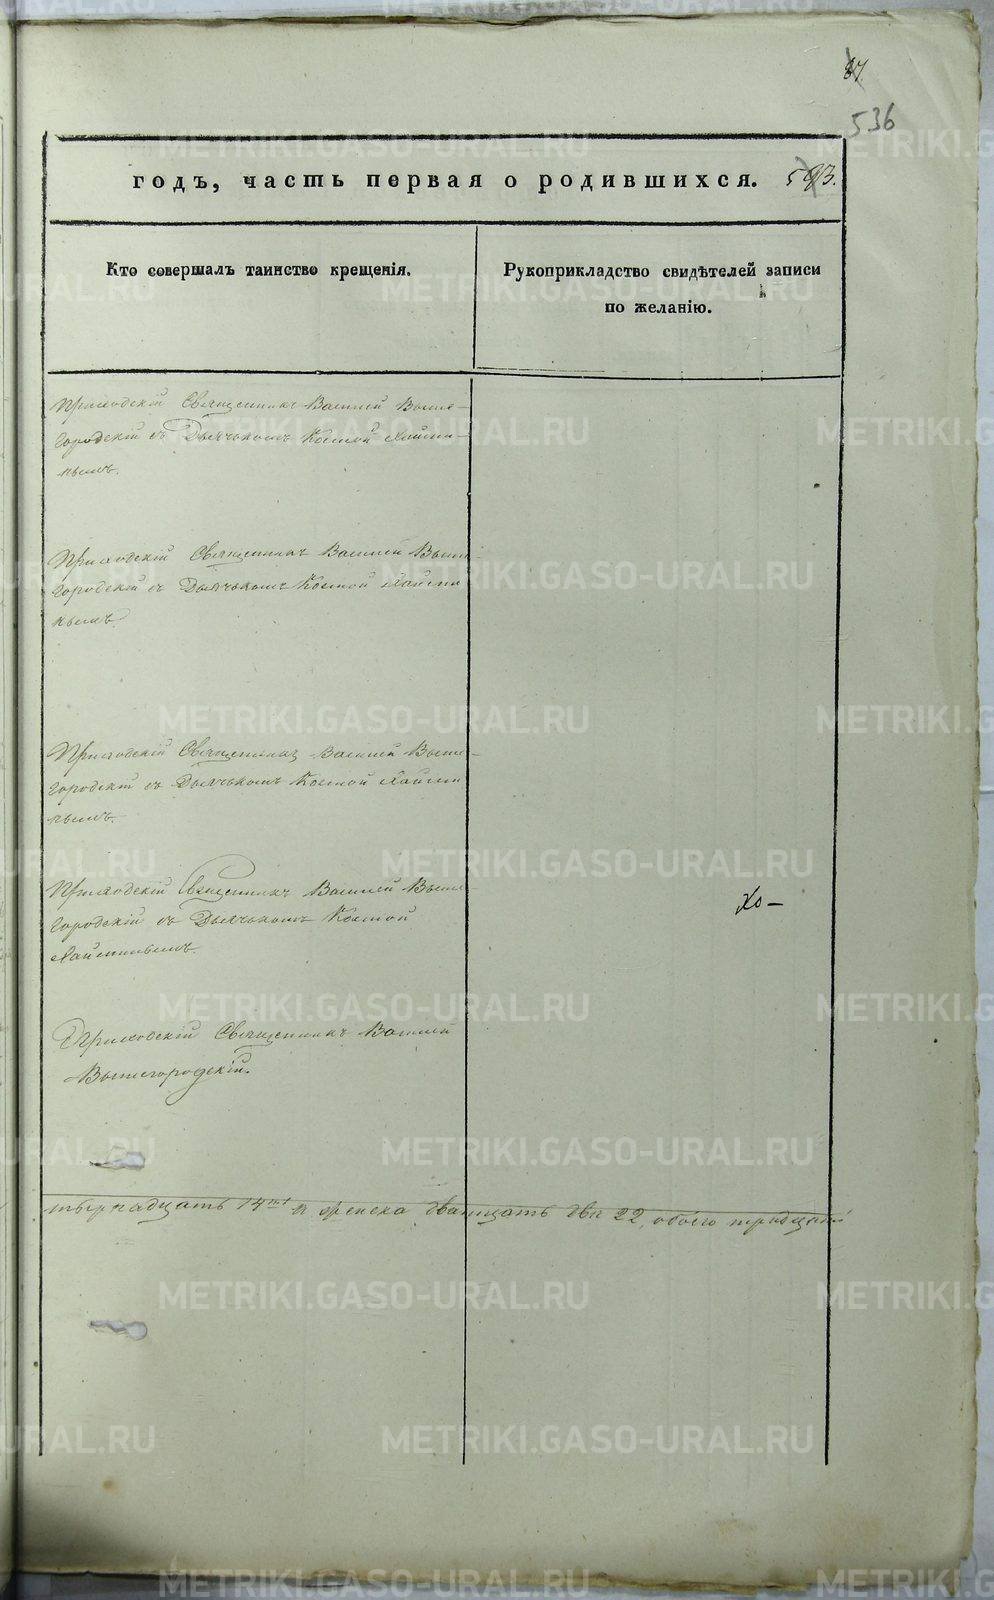 87.
536
годъ, часть первая о родившихся. 593.
Кто совершалъ таинство крещенія.
Рукоприкладство свидѣтелей записи
по желанію.
Приходскій Священникъ Василій Выше-
городскій съ Дьячькомъ Космой
Приходскій Священникъ Василій Выше-
городскій съ Дьячькомъ Космой
Приходскій Священникъ Василій Выше-
городскій съ Дьячькомъ Космой
Приходскій Священникъ Василій Выше-
городскій съ Дьячькомъ Космой
Хо-
Приходскій Священникъ Василій
Вышегородскій.
тырнадцать 14 ть и женска двацать два 22, обоего тридцать
METRIKI.GASO-URAL.RU